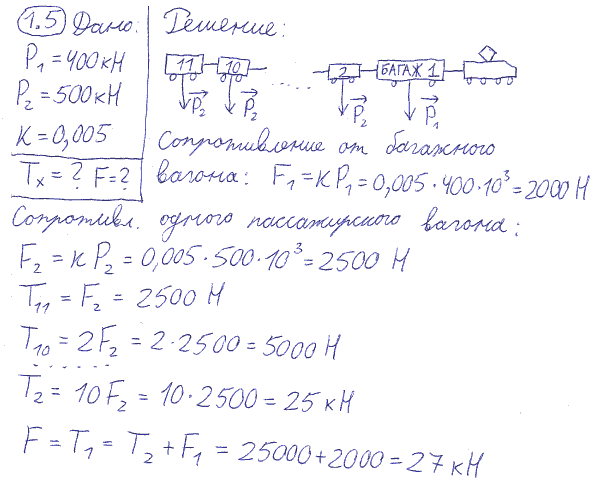 1.5 Дано: Решение:
P₁ = 400 кН
P₂ = 500 кН
K = 0,005
Tₓ = ? F = ?
11 10 ..... 2 БАГАЖ 1
P₂ P₂ P₂ P₁
Сопротивление от багажного
вагона: F₁ = K P₁ = 0,005 · 400 · 10³ = 2000 Н
Сопротивл. одного пассажирского вагона:
F₂ = K P₂ = 0,005 · 500 · 10³ = 2500 Н
T₁₁ = F₂ = 2500 Н
T₁₀ = 2F₂ = 2 · 2500 = 5000 Н
.......
T₂ = 10 F₂ = 10 · 2500 = 25 кН
F = T₁ = T₂ + F₁ = 25000 + 2000 = 27 кН